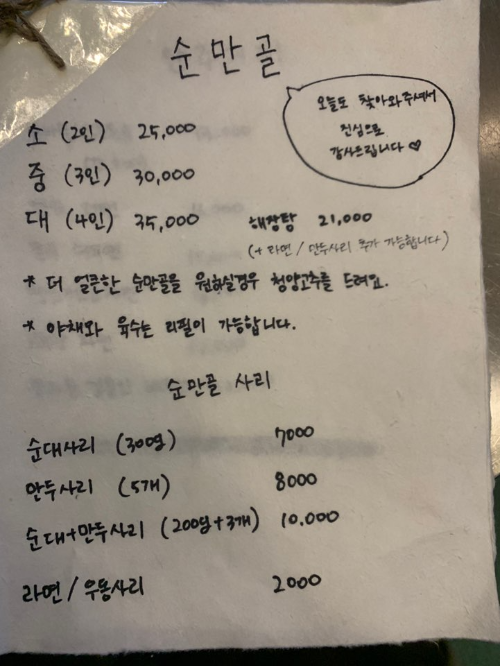 순만골
오늘도 찾아와주셔서
진심으로
감사드립니다 ♡
소 (2인) 25,000
중 (3인) 30,000
대 (4인) 35,000
해장탕 21,000
(+ 라면 / 만두사리 추가 가능합니다)
* 더 얼큰한 순만골을 원하실경우 청양고추를 드려요.
* 야채와 육수는 리필이 가능합니다.
순만골 사리
순대사리 (300g) 7000
만두사리 (5개) 8000
순대+만두사리 (200g+3개) 10,000
라면 / 우동사리 2000